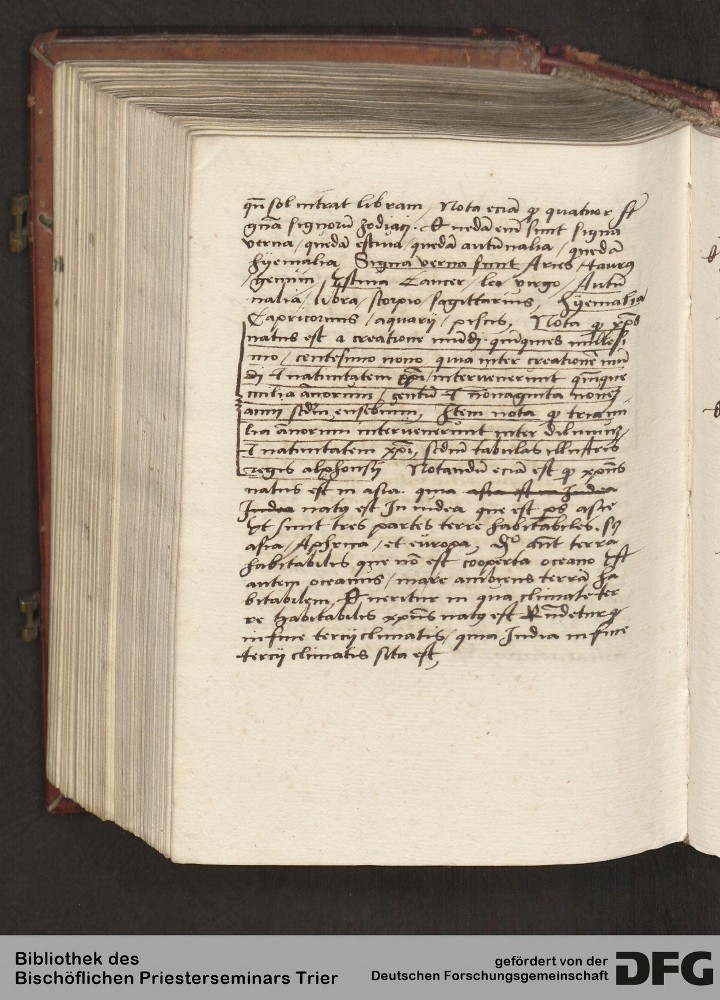 qn̄ sol intrat libram / Nota eciā ꝙ quatuor st̄
gn̄a signorū zodiaci. Quedā eīn sunt signa
verna / quedā estiua / quedā autūnalia / quedā
hyemalia Signa verna sunt Aries / taurꝰ
/ gemini / Estiua Cancer / leo virgo / Autū
nalia / libra / scorpio / sagittarius, hyemalia
Capricornus / aquarij / pisces, Nota ꝙ xp̄s
natus est a creatione mūdi. quinquies millesi
mo / centesimo nono quia inter creationē mū
di & natiuitatem xp̄i / interuenerunt quinque
milia annorum / centū & nonaginta nouē
anni scdm̄ eusebium, Item nota ꝙ tria mi
lia annorum interuenerunt inter diluuiū
& natiuitatem xp̄i, scdm̄ tabulas illustres
regis alphonsij Notandū eciā est ꝙ xp̄ūs
natus est in asia. quia asia est in Iudea
Iudea natꝰ est In iudea que est ps̄ asie
sunt tres partes terre habitabiles. sꝫ
asia / Aphrica / et europa, terra
habitabilis que nō est cooperta oceano Est
autem oceanus / mare ambiens terrā ha
bitabilem, Queritur in qua climate ter
re habitabilis xp̄ūs natꝰ est Rn̄detur ꝙ
in fine tercij climatis / quia India in fine
tercij climatis sita est,
Bibliothek des
Bischöflichen Priesterseminars Trier
gefördert von der
Deutschen Forschungsgemeinschaft DFG